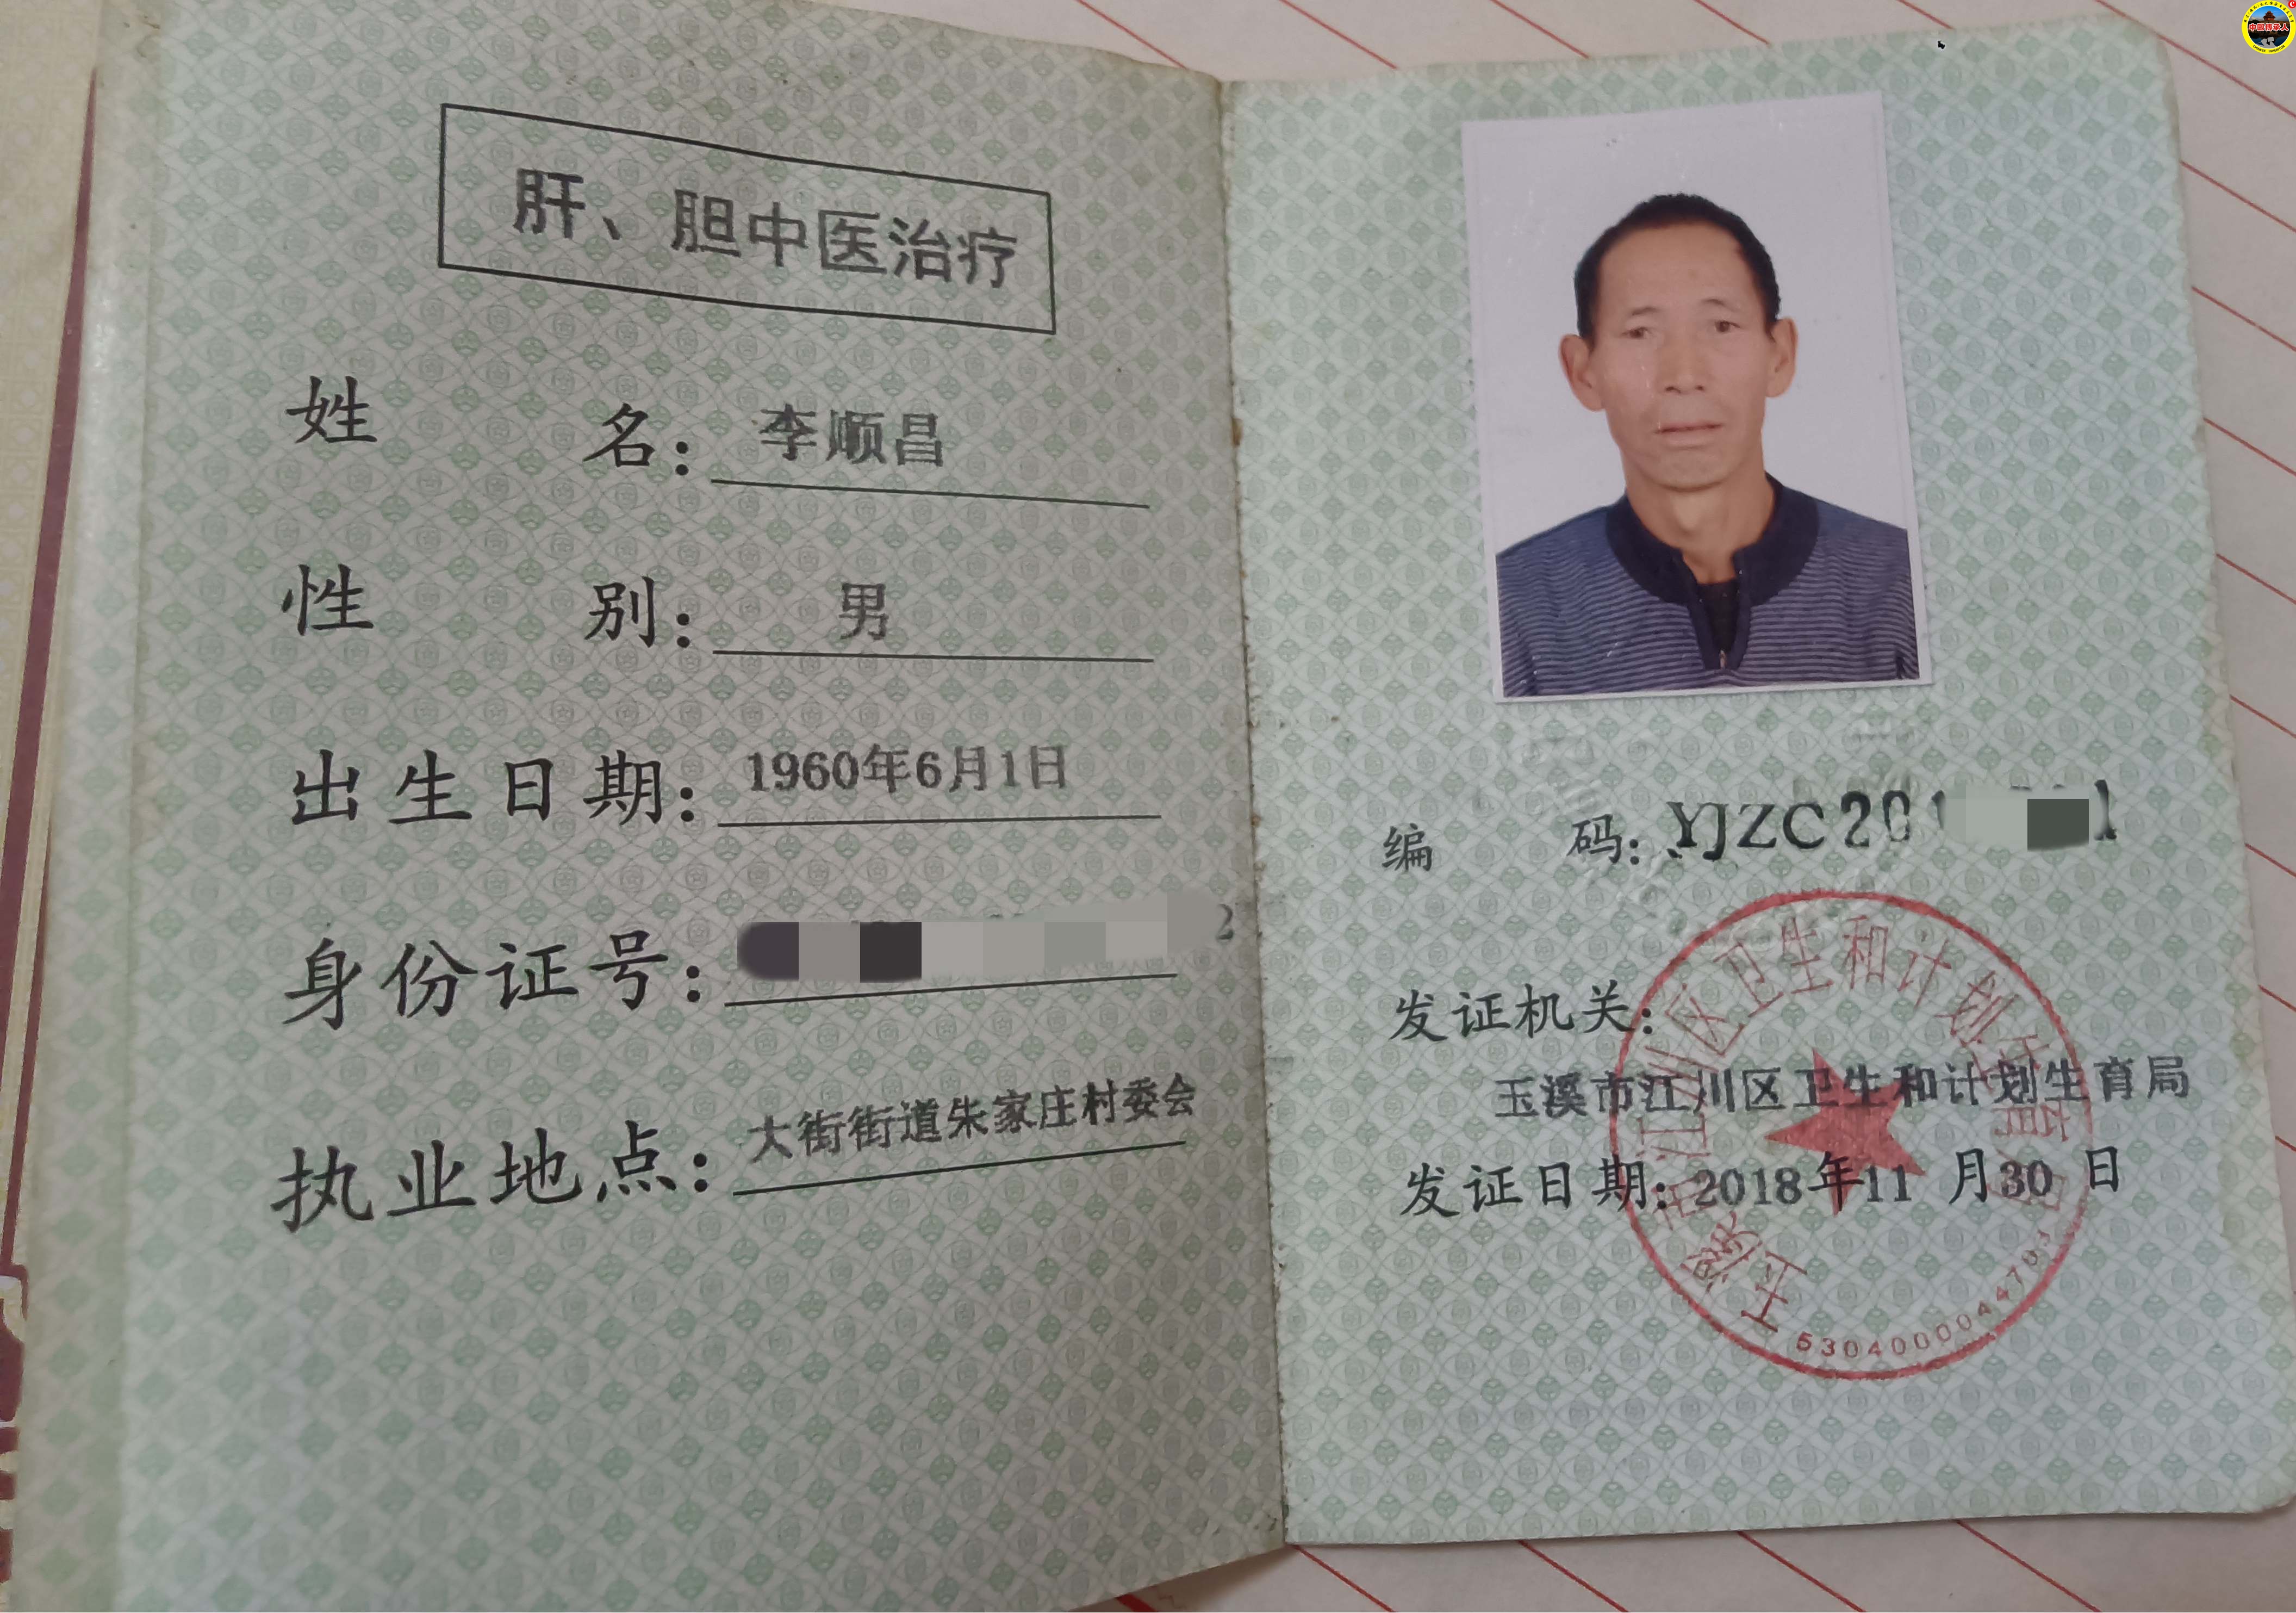 肝、胆中医治疗
姓 名：李顺昌
性 别：男
出生日期：1960年6月1日
身份证号：2
执业地点：大街街道朱家庄村委会
编 码：YJZC201
发证机关：
玉溪市江川区卫生和计划生育局
发证日期：2018年11月30日
玉溪市江川区卫生和计划生育局
中医传承人